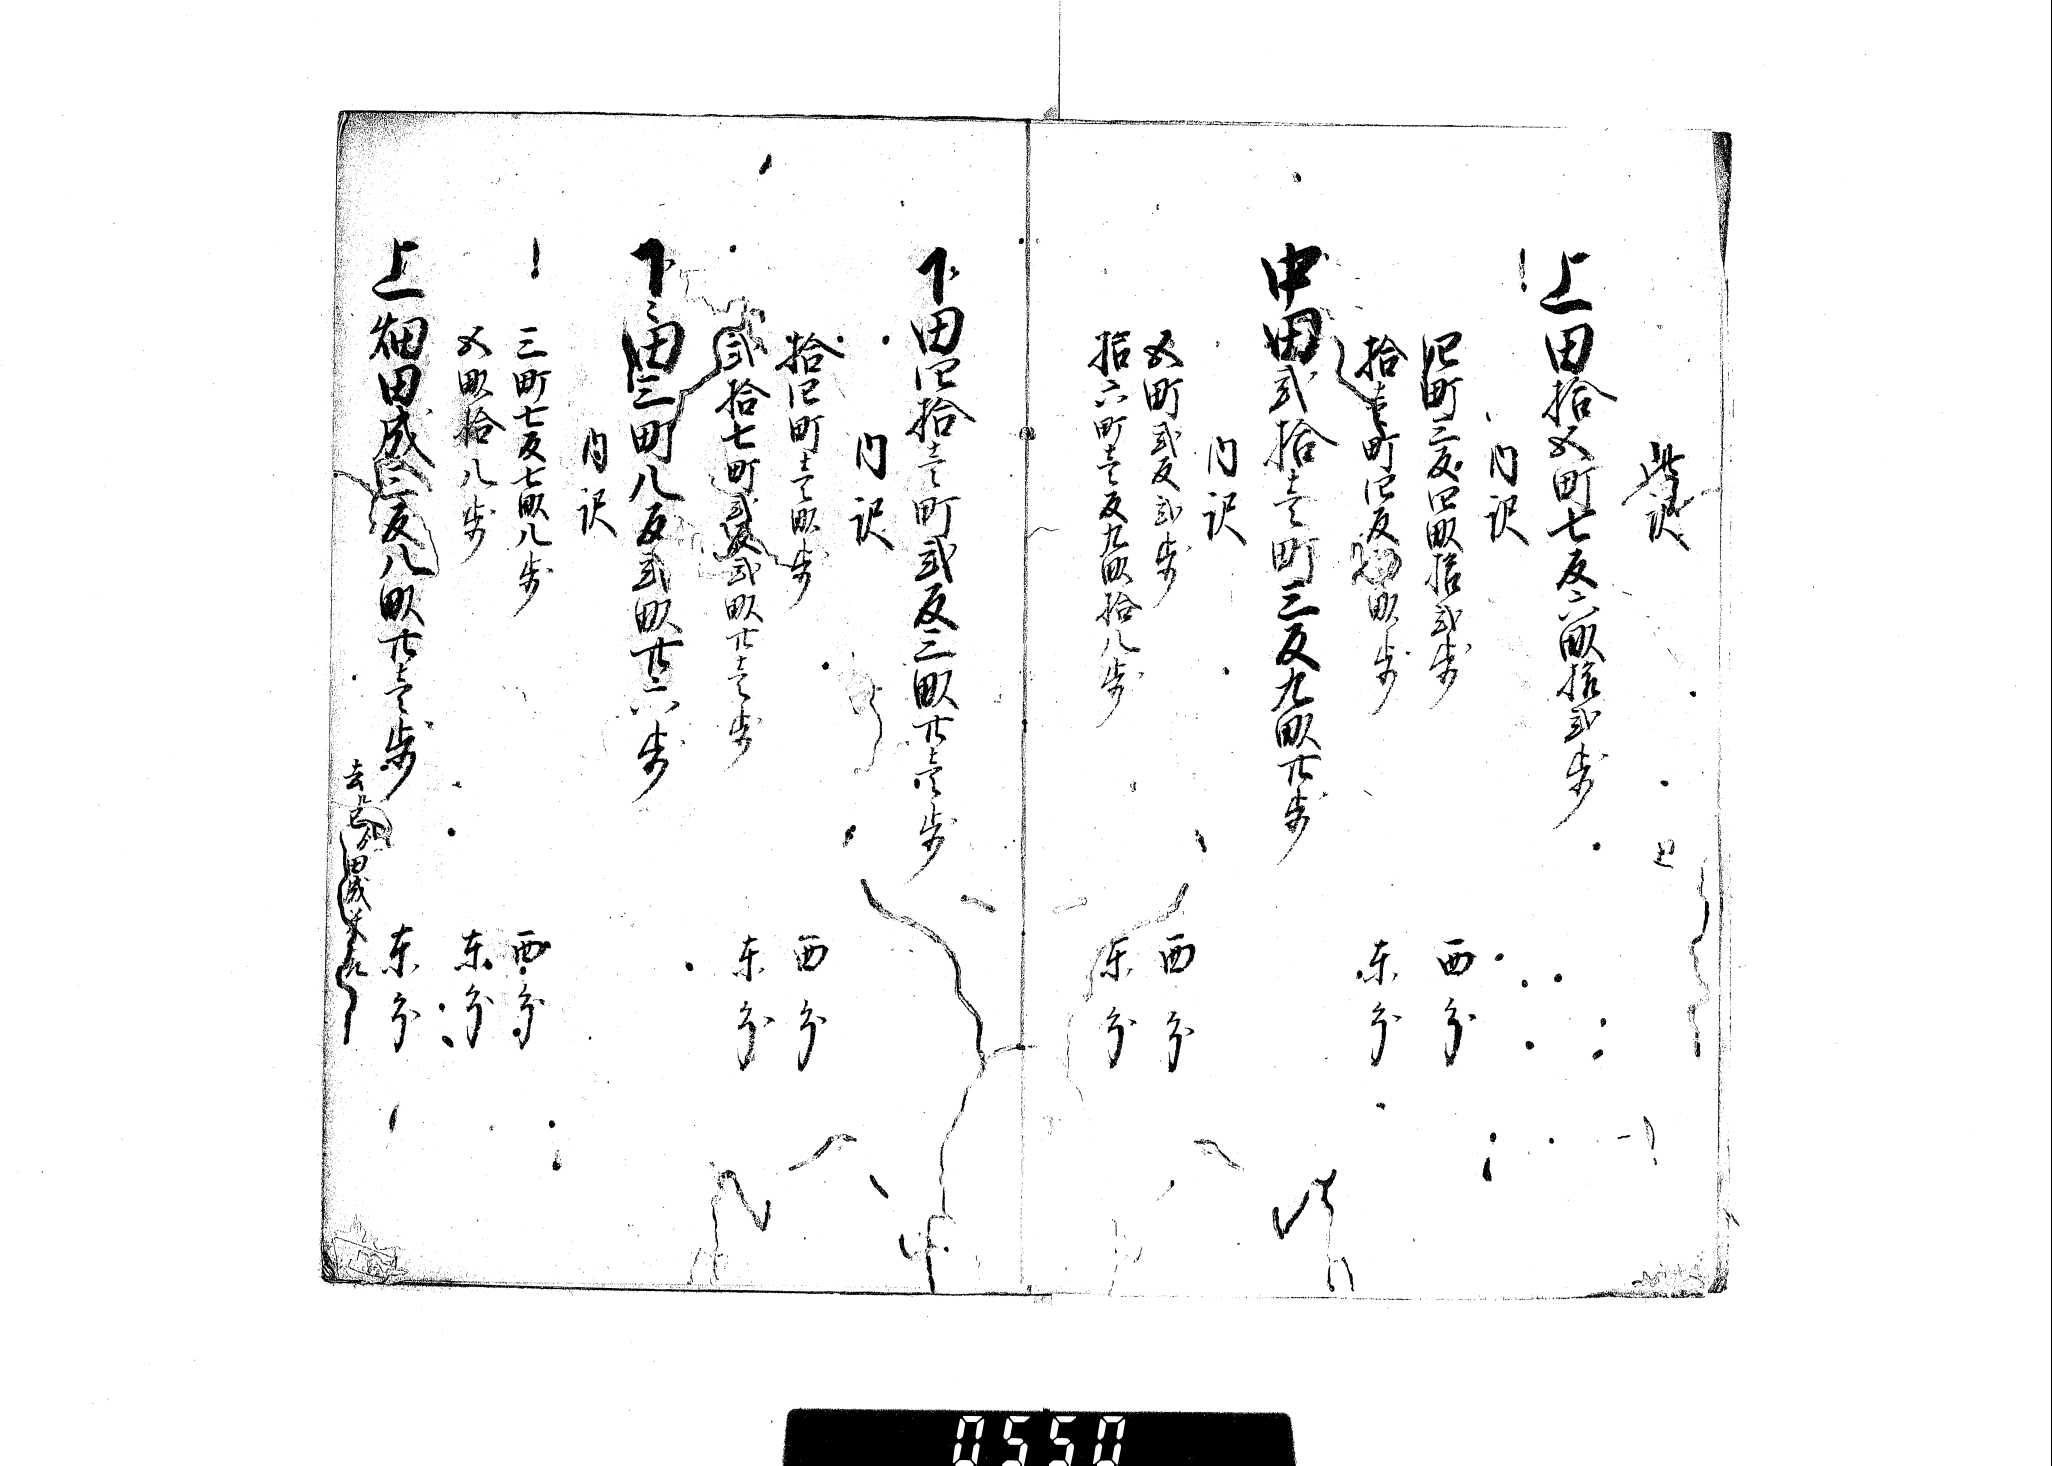 此訳
上田拾五町七反六畝拾弐歩
内訳
四町三反四畝拾弐歩 西分
拾壱町四反弐畝歩 東分
中田弐拾壱町三反九畝廿歩
内訳
五町弐反弐歩 西分
拾六町壱反九畝拾八歩 東分
下田四拾壱町弐反三畝廿壱歩
内訳
拾四町壱畝歩 西分
弐拾七町弐反弐畝廿壱歩 東分
下々田三町八反弐畝廿六歩
内訳
三町七反七畝八歩 西分
五畝拾八歩 東分
上畑田成三反八畝廿壱歩 東分
去巳ゟ田成
0550